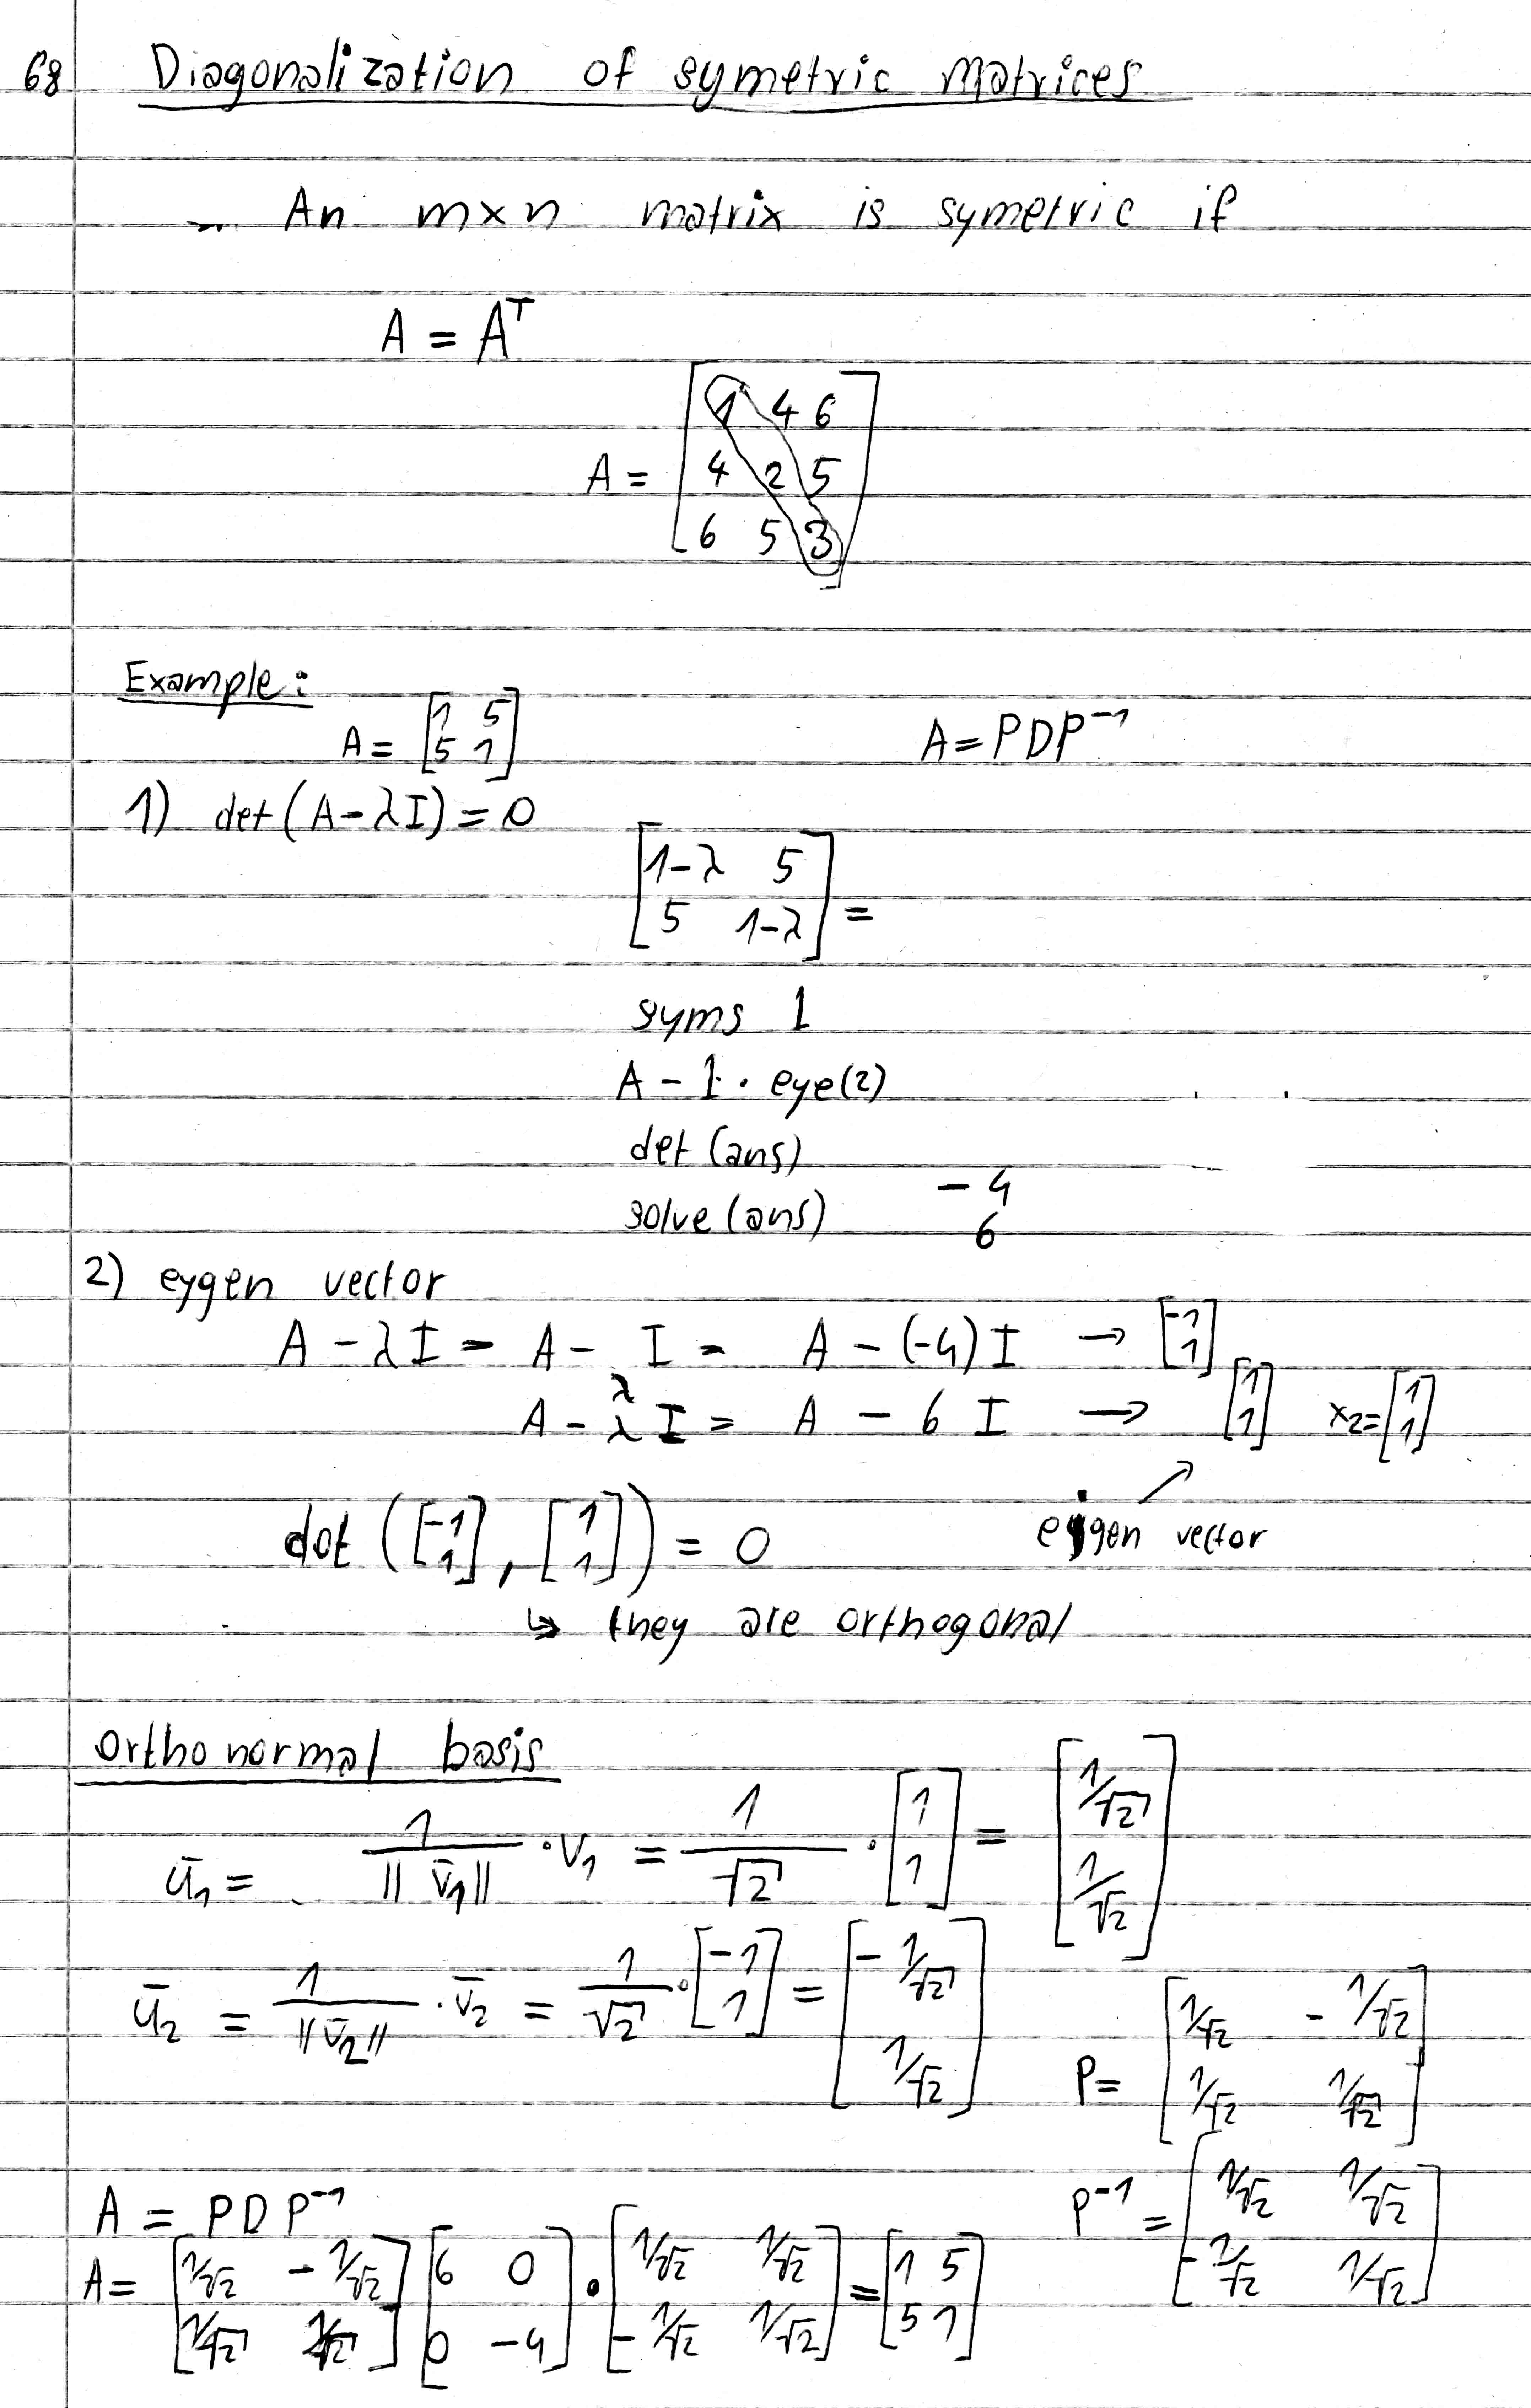 68 Diagonalization of symetric matrices
An m×n matrix is symetric if
A = Aᵀ
A = [1 4 6
4 2 5
6 5 3]
Example:
A = [1 5
5 1]
A = PDP⁻¹
1) det(A-λI) = 0
[1-λ 5
5 1-λ] =
syms l
A - l · eye(2)
det(ans)
solve(ans) -4
6
2) eygen vector
A - λI = A - λ I = A - (-4)I → [-1
1]
A - λ I = A - 6 I → [1
1] x₂ = [1
1]
eigen vector
dot ([-1
1], [1
1]) = 0
↳ they are orthogonal
Orthonormal basis
ū₁ = 1/‖v̄₁‖ · v₁ = 1/√2 · [1
1] = [1/√2
1/√2]
ū₂ = 1/‖v̄₂‖ · v̄₂ = 1/√2 · [-1
1] = [-1/√2
1/√2]
P = [1/√2 -1/√2
1/√2 1/√2]
P⁻¹ = [1/√2 1/√2
-1/√2 1/√2]
A = PDP⁻¹
A = [1/√2 -1/√2
1/√2 1/√2] [6 0
0 -4] · [1/√2 1/√2
-1/√2 1/√2] = [1 5
5 1]